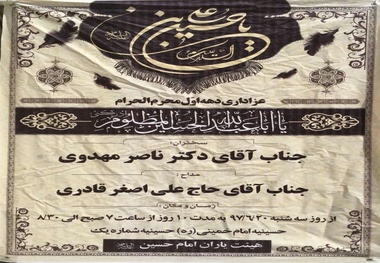 یا حسین بن علی
عزاداری دهه اول محرم الحرام
یا اباعبدالله الحسین المظلوم
سخنران:
جناب آقای دکتر ناصر مهدوی
مداح:
جناب آقای حاج علی اصغر قادری
زمان و مکان:
از روز سه شنبه ۹۷/۶/۲۰ به مدت ۱۰ روز از ساعت ۷ صبح الی ۸/۳۰
حسینیه امام خمینی (ره) حسینیه شماره یک
هیئت یاران امام حسین